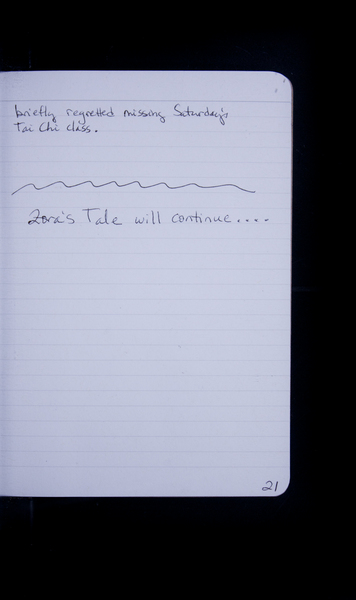 briefly regretted missing Saturday's
Tai Chi class.
Zora's Tale will continue....
21